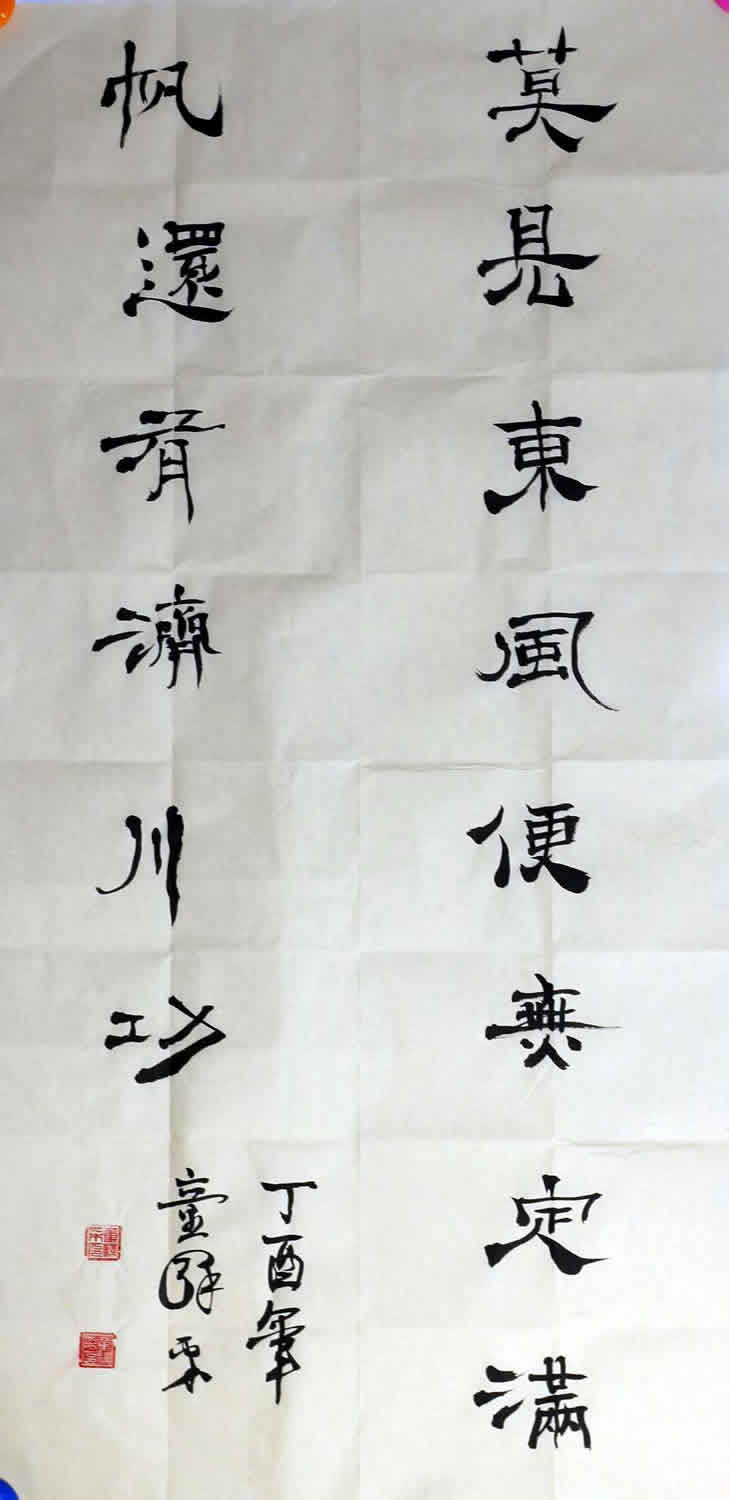 莫見東風便無定滿
帆還有濟川功
丁酉年
童